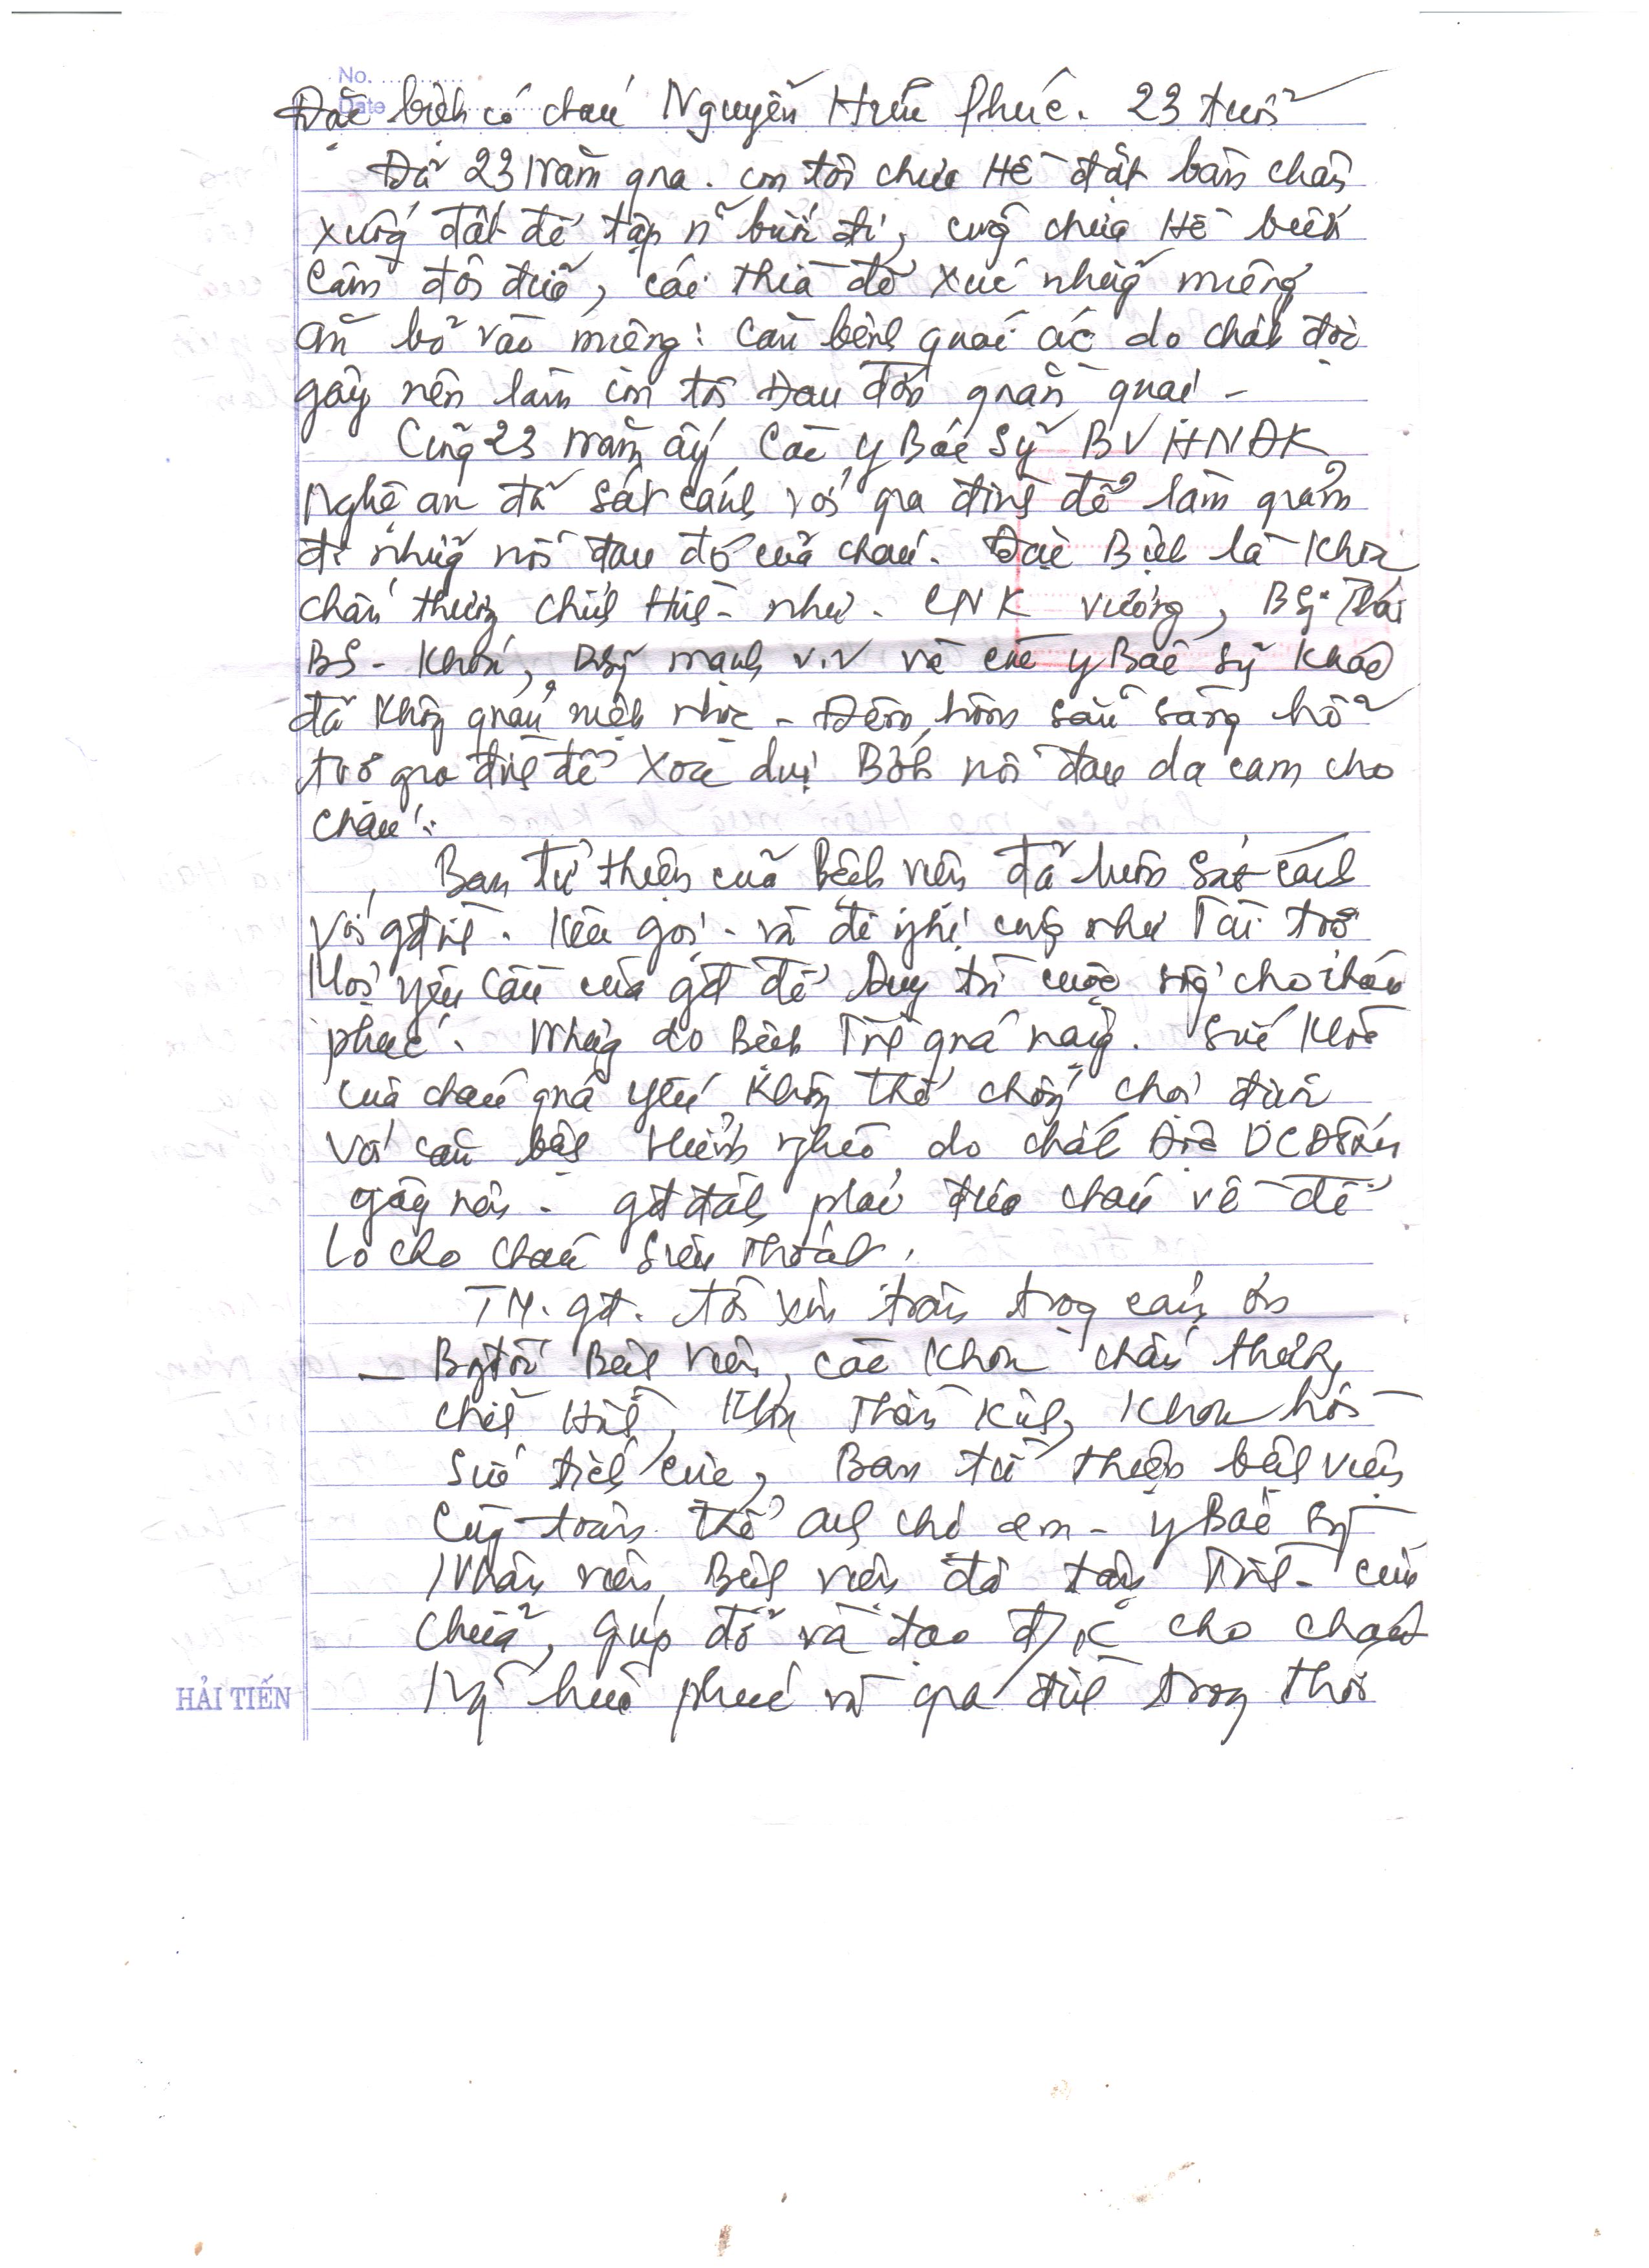 No. ............
Date ............
Đặc biệt có cháu Nguyễn Hữu Phúc. 23 tuổi
Đã 23 năm qua. con tôi chưa Hề đặt bàn chân
xuống đất để tập bước đi, cũng chưa Hề biết
Cầm đôi đũa, cái thìa để xúc những miếng
ăn bỏ vào miệng: Căn bệnh quái ác do chất độc
gây nên làm con tôi Đau đớn quằn quại -
Cũng 23 năm ấy Các y Bác Sỹ BV HNĐK
Nghệ an đã sát cánh với gia đình để làm giảm
đi những nỗi đau đó của cháu. Đặc Biệt là Khoa
chấn thương chỉnh Hình - như. CNK Vương, BS. Thái
BS - Khôi, mạnh v.v và các y Bác sỹ khác
đã không quản mệt nhọc - Đêm hôm sẵn sàng hỗ
trợ gia đình để xoa dịu Bớt nỗi đau da cam cho
cháu!
Ban từ thiện của Bệnh viện đã luôn sát cánh
Với gđình. Kêu gọi - và đề nghị cũng như Tài trợ
Mọi yêu cầu của gđ để Duy trì cuộc sống cho cháu
phúc. Nhưng do Bệnh Tình quá nặng. Sức Khỏe
của cháu quá yếu Không thể chống chọi được
Với căn bệnh Hiểm nghèo do chất
gây nên. gđ đành phải đưa cháu về để
lo cho cháu Siêu Thoát.
TM. gđ. tôi xin trân trọng cảm ơn
- Bệnh viện, các Khoa chấn thương
chỉnh Hình, Khoa Thần Kinh, Khoa hồi
Sức tích cực, Ban từ thiện bệnh viện
Cùng toàn thể anh chị em - y Bác sỹ
Nhân viên Bệnh viện đã tận Tình - cứu
Chữa, giúp đỡ và tạo đ/k cho cháu
Ng hữu phúc và gia đình trong thời
HẢI TIẾN